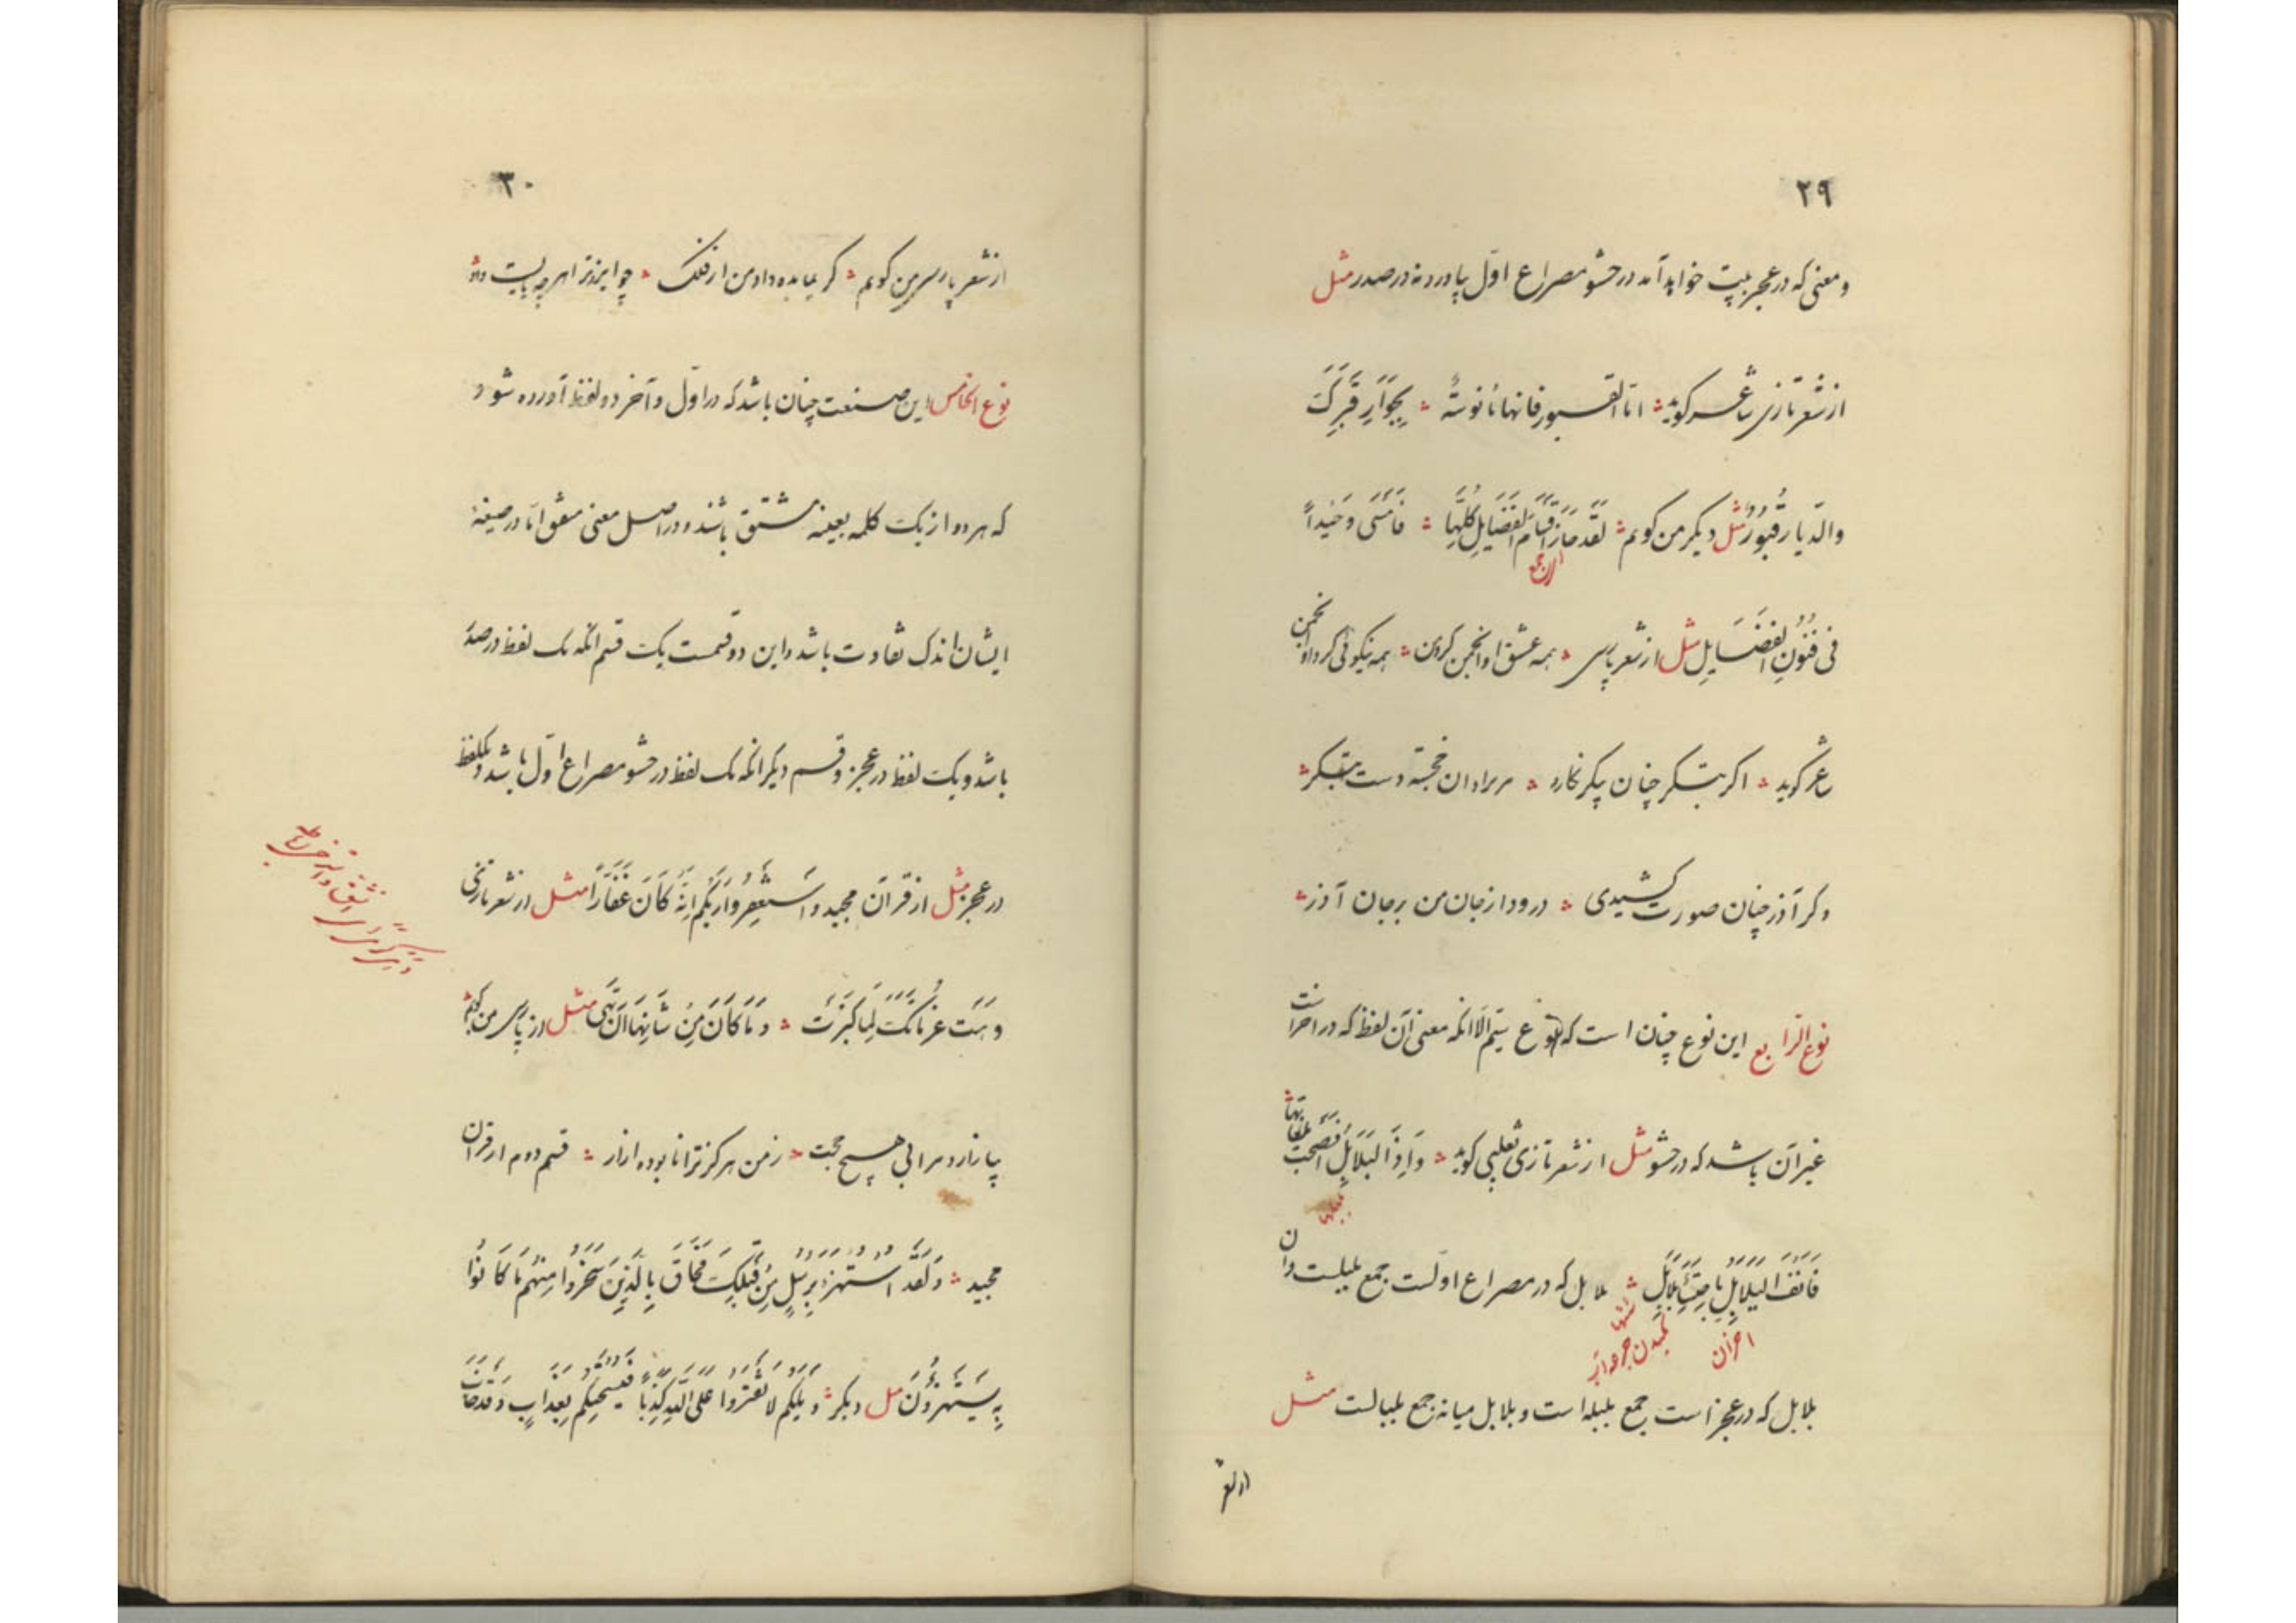 ۲۹
و معنی که در عجز بیت خواهد آمد در حشو مصراع اول بیاورد نه در صدر مثل
از شعر تازی شاعر گوید اما القبور فانها مأنوسة بِجِوَارِ قَبْرِكَ
والدّیار قُبُورُ مثل دیگر من گویم لَقَد حَازَ اَقسَامَ الفَضَایِلِ كُلَّهِا فَاَمسَی وَحَیداً
فی فُنُونِ الفَضَایِلِ مثل از شعر پارسی همه عشق او انجمن گرد من همه نیکوئی گرد او انجمن
شاعر گوید اگر بتگر چنان پیکر نگارد مریزاد آن خجسته دست بتگر
وگر آذر چنان صورت کشیدی درود از جان من بر جان آذر
نوع الرابع این نوع چنان است که نوع سیّم الّا انکه معنی آن لفظ که در آخر است
غیر آن باشد که در حشو مثل از شعر تازی ثعلبی گوید وَاِذَا البَلَابِلُ اَفصَحَت بِلُغَاتِهَا
فَانفِ البَلَابِلَ بِاحتِسَاءِ بَلَابِلِ بلابل که در مصراع اولست جمع بلبلست و آن
احزان
بلابل که در عجز است جمع بلبله است و بلابل میانه جمع بلبالست مثل
۳۰
از شعر پارسی من گویم گر نیامده داد من از فلک چو ایزد ترا هر چه بایست داد
نوع الخامس این صنعت چنان باشد که در اوّل و آخر دو لفظ آورده شود
که هر دو از یک کلمه بعینه مشتق باشند و در اصل معنی متفق امّا در صیغهٔ
ایشان اندک تفاوت باشد و این دو قسمست یک قسم انکه یک لفظ در صدر
باشد و یک لفظ در عجز و قسم دیگر انکه یک لفظ در حشو مصراع اوّل باشد و یکلفظ
در عجز مثل از قرآن مجید و اسْتَغْفِرُوا رَبَّكُم اِنَّهُ كَانَ غَفَّارًا مثل از شعر تازی
وَهَت عَزَمَاتُكَ لَمَّا كَبُرَت وَمَا كَانَ مِن شَانِهَا اَن تَهَی مثل از پارسی من گویم
بیازارد مرا بی هیچ حجت ز من هرگز ترا نابوده آزار قسم دوم از قرآن
مجید وَلَقَدِ اسْتُهْزِئَ بِرُسُلٍ مِنْ قَبْلِكَ فَحَاقَ بِالَّذِينَ سَخِرُوا مِنْهُم مَا كَانُوا
بِهِ يَسْتَهْزِؤُنَ مثل دیگر وَيْلَكُم لَا تَفْتَرُوا عَلَى اللهِ كَذِبًا فَيُسْحِتَكُم بِعَذَابٍ وَقَدْ خَابَ